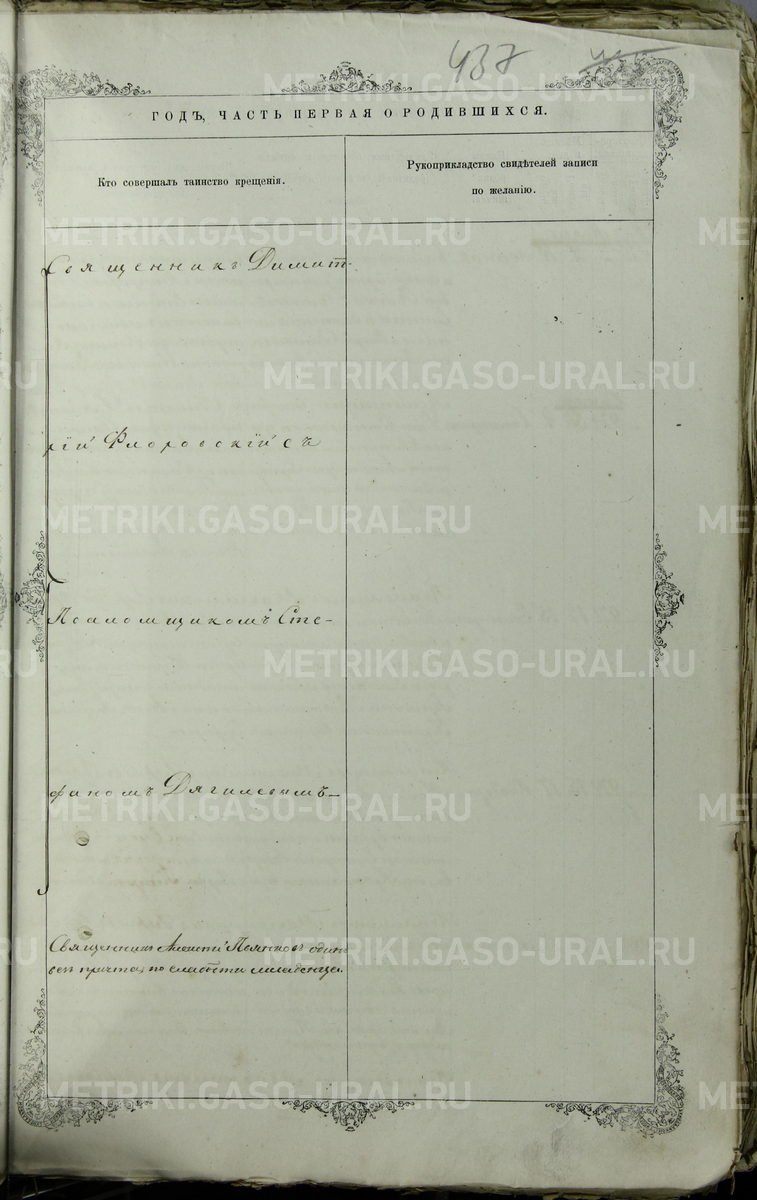 437
ГОДЪ, ЧАСТЬ ПЕРВАЯ О РОДИВШИХСЯ.
Кто совершалъ таинство крещенія.
Рукоприкладство свидѣтелей записи
по желанію.
Священникъ Димит-
рій Флоровскій съ
Псаломщикомъ Сте-
фаномъ Дягилевымъ
Священникъ Алексій одинъ
безъ причта, по слабости младенца.
METRIKI.GASO-URAL.RU